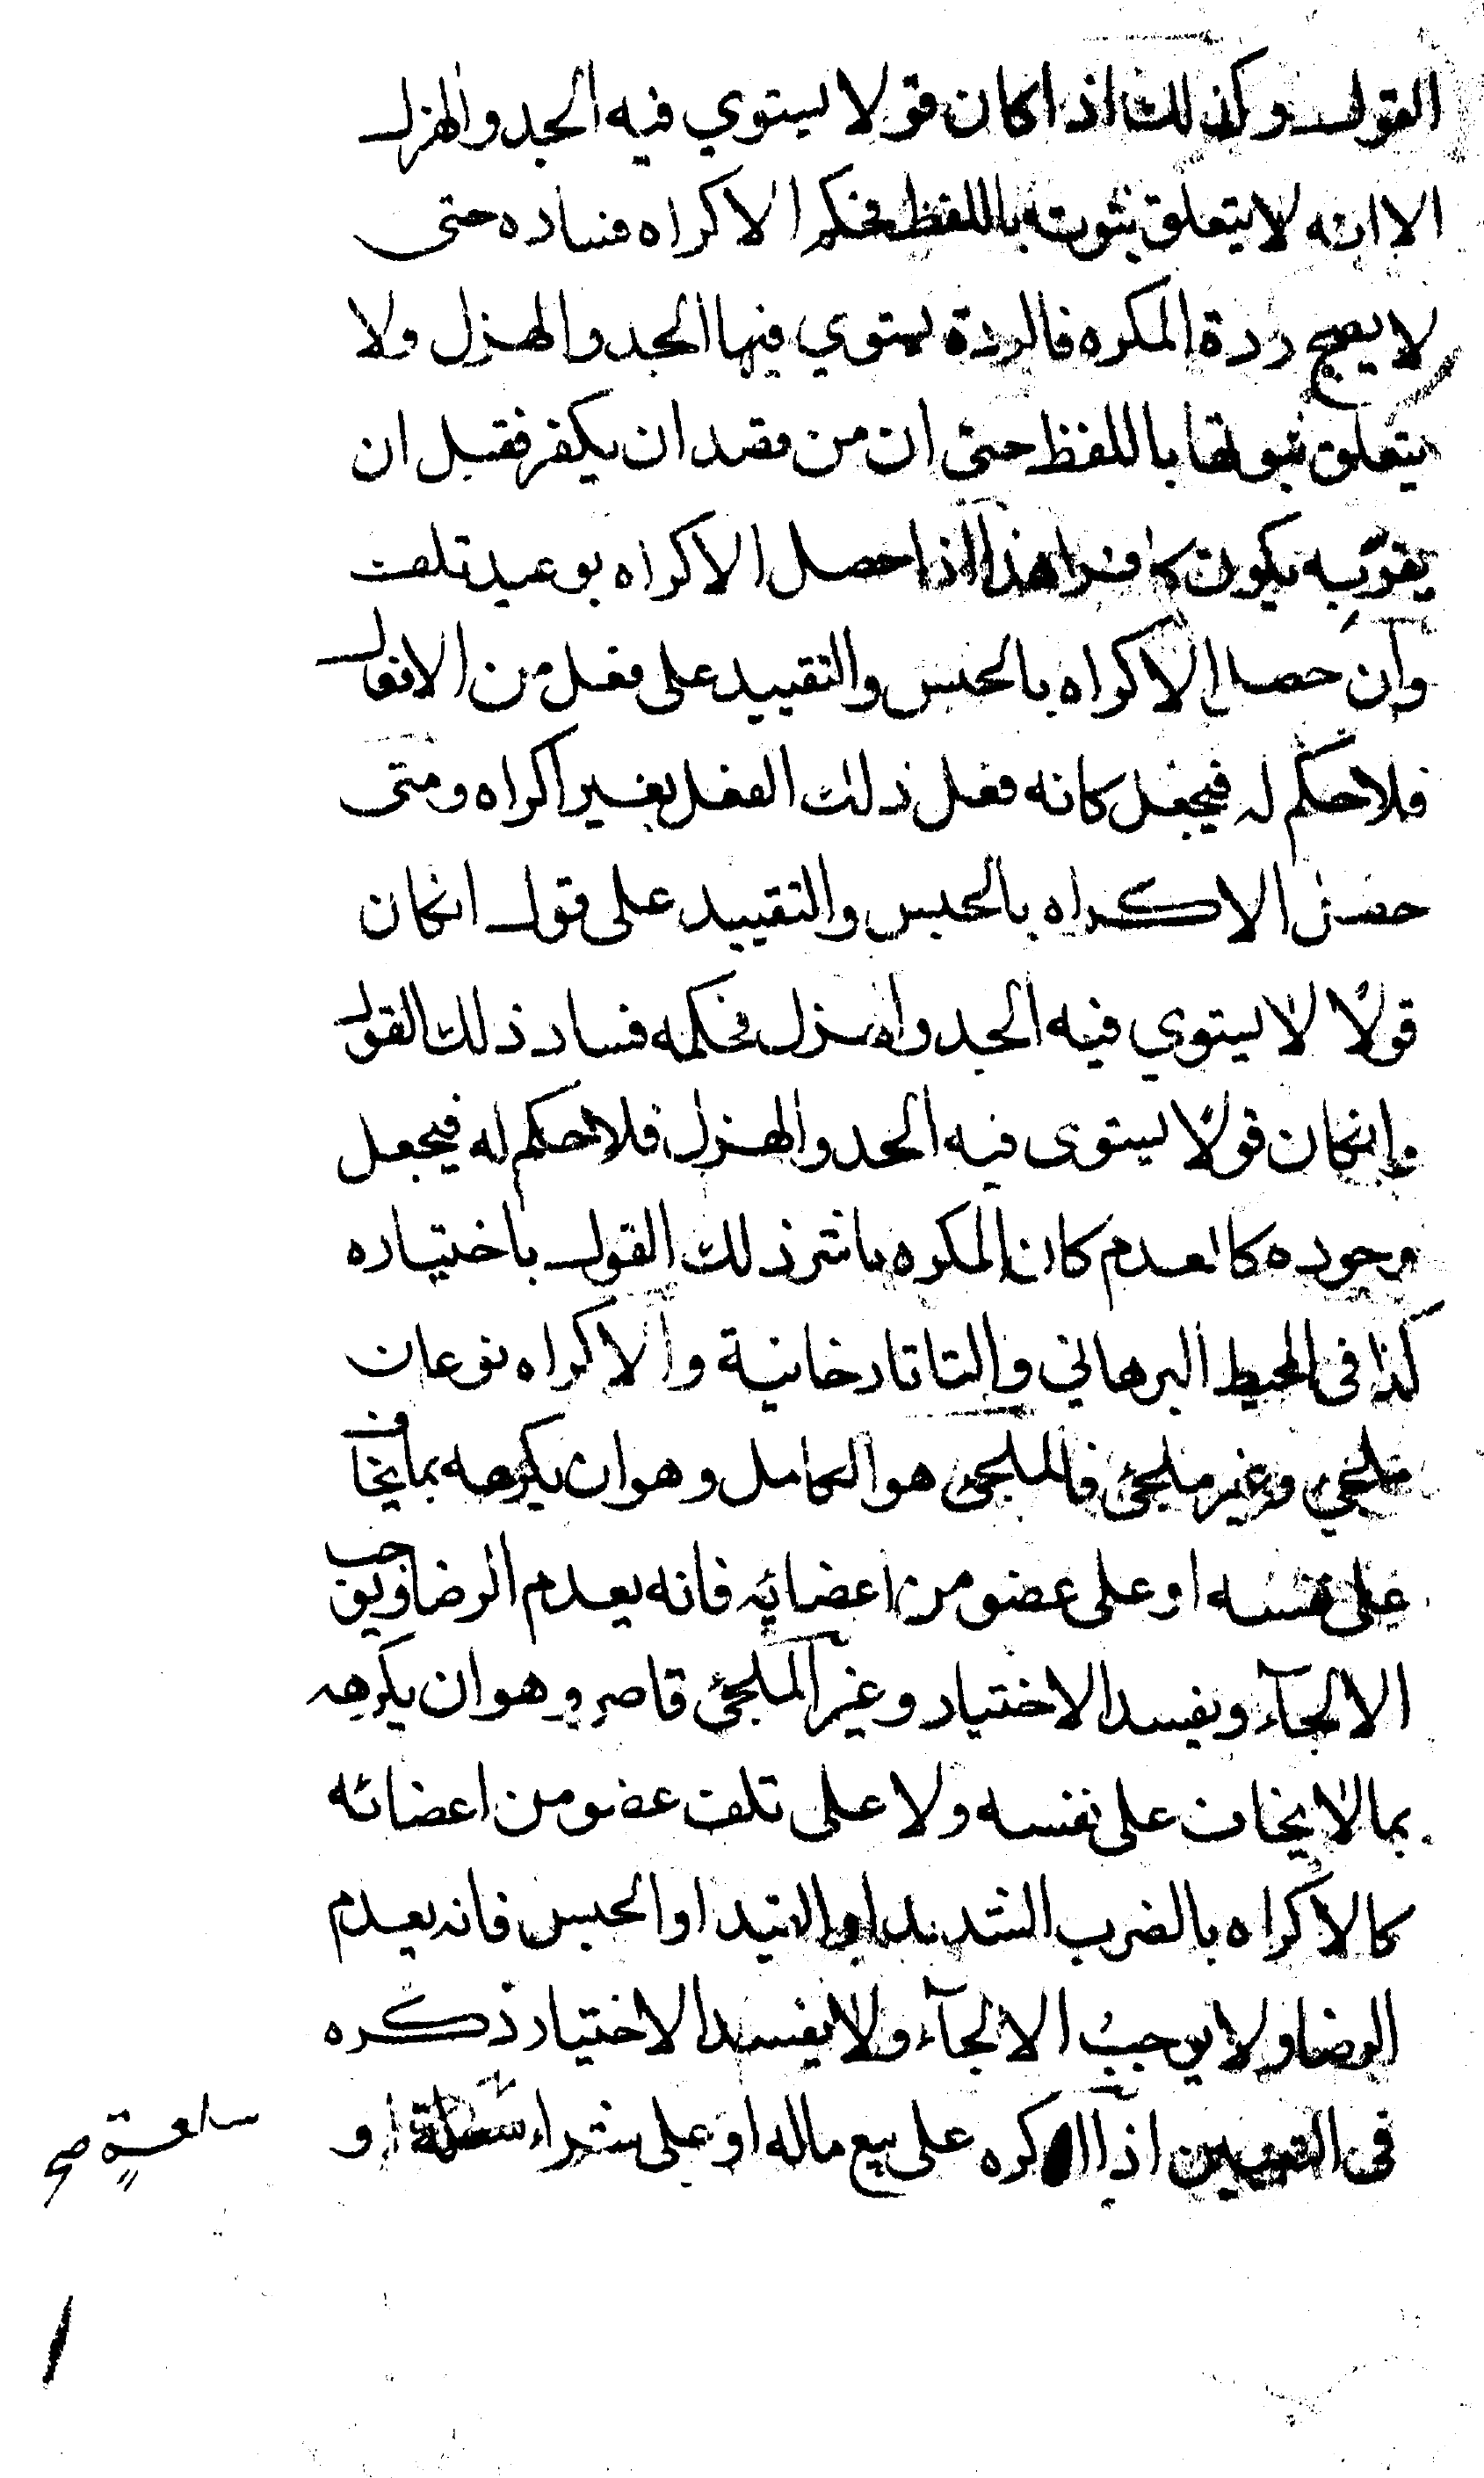 القول وكذلك اذا كان قولا يستوي فيه الجد والهزل
الا انه لا يتعلق ثبوته باللفظ فحكم الاكراه فساده حتى
لا يصح ردة المكره فالردة يستوي فيها الجد والهزل ولا
يتعلق ثبوتها باللفظ حتى ان من قصد ان يكفر فقبل ان
يفوّه به يكون كافرا هذا اذا حصل الاكراه بوعيد تلف
وان حصل الاكراه بالحبس والتقييد على فعل من الافعال
فلا حكم له فيجعل كانه فعل ذلك الفعل بغير اكراه ومتى
حصل الاكراه بالحبس والتقييد على قول انكان
قولا لا يستوي فيه الجد والهزل فحكمه فساد ذلك القول
وانكان قولا يستوى فيه الجد والهزل فلا حكم له فيجعل
وجوده كالعدم كان المكره باشر ذلك القول باختياره
كذا فى المحيط البرهاني والتاتارخانية والاكراه نوعان
ملجئ وغير ملجئ فالملجئ هو الكامل وهو ان يكرهه بما يخاف
على نفسه او على عضو من اعضائه فانه يعدم الرضا ويوجب
الالجآء ويفسد الاختيار وغير الملجئ قاصر وهو ان يكرهه
بما لا يخاف على نفسه ولا على تلف عضو من اعضائه
كالاكراه بالضرب الشديد او القيد او الحبس فانه يعدم
الرضا ولا يوجب الالجآء ولا يفسد الاختيار ذكره
فى التبيين اذا اكره على بيع ماله او على شراء سلعة او
سلعة صح